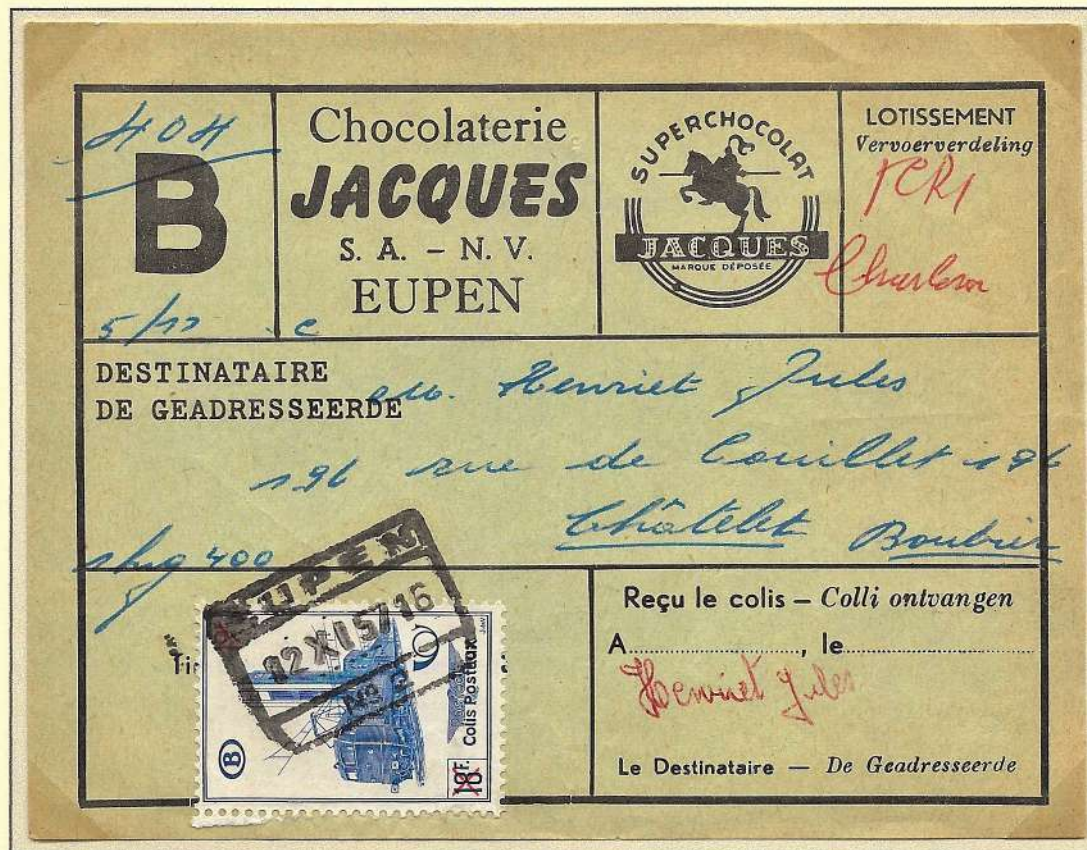 404
B
5/11 c
Chocolaterie
JACQUES
S. A. - N. V.
EUPEN
SUPERCHOCOLAT
JACQUES
MARQUE DÉPOSÉE
LOTISSEMENT
Vervoerverdeling
DESTINATAIRE
DE GEADRESSEERDE
M. Henriet Jules
196 rue de Couillet 196
Châtelet Boubier
1 kg 400
EUPEN
02 XI 57 16
No 2
B
18F.
Colis Postaux
Reçu le colis – Colli ontvangen
A..............................., le...............................
Henriet Jules
Le Destinataire — De Geadresseerde